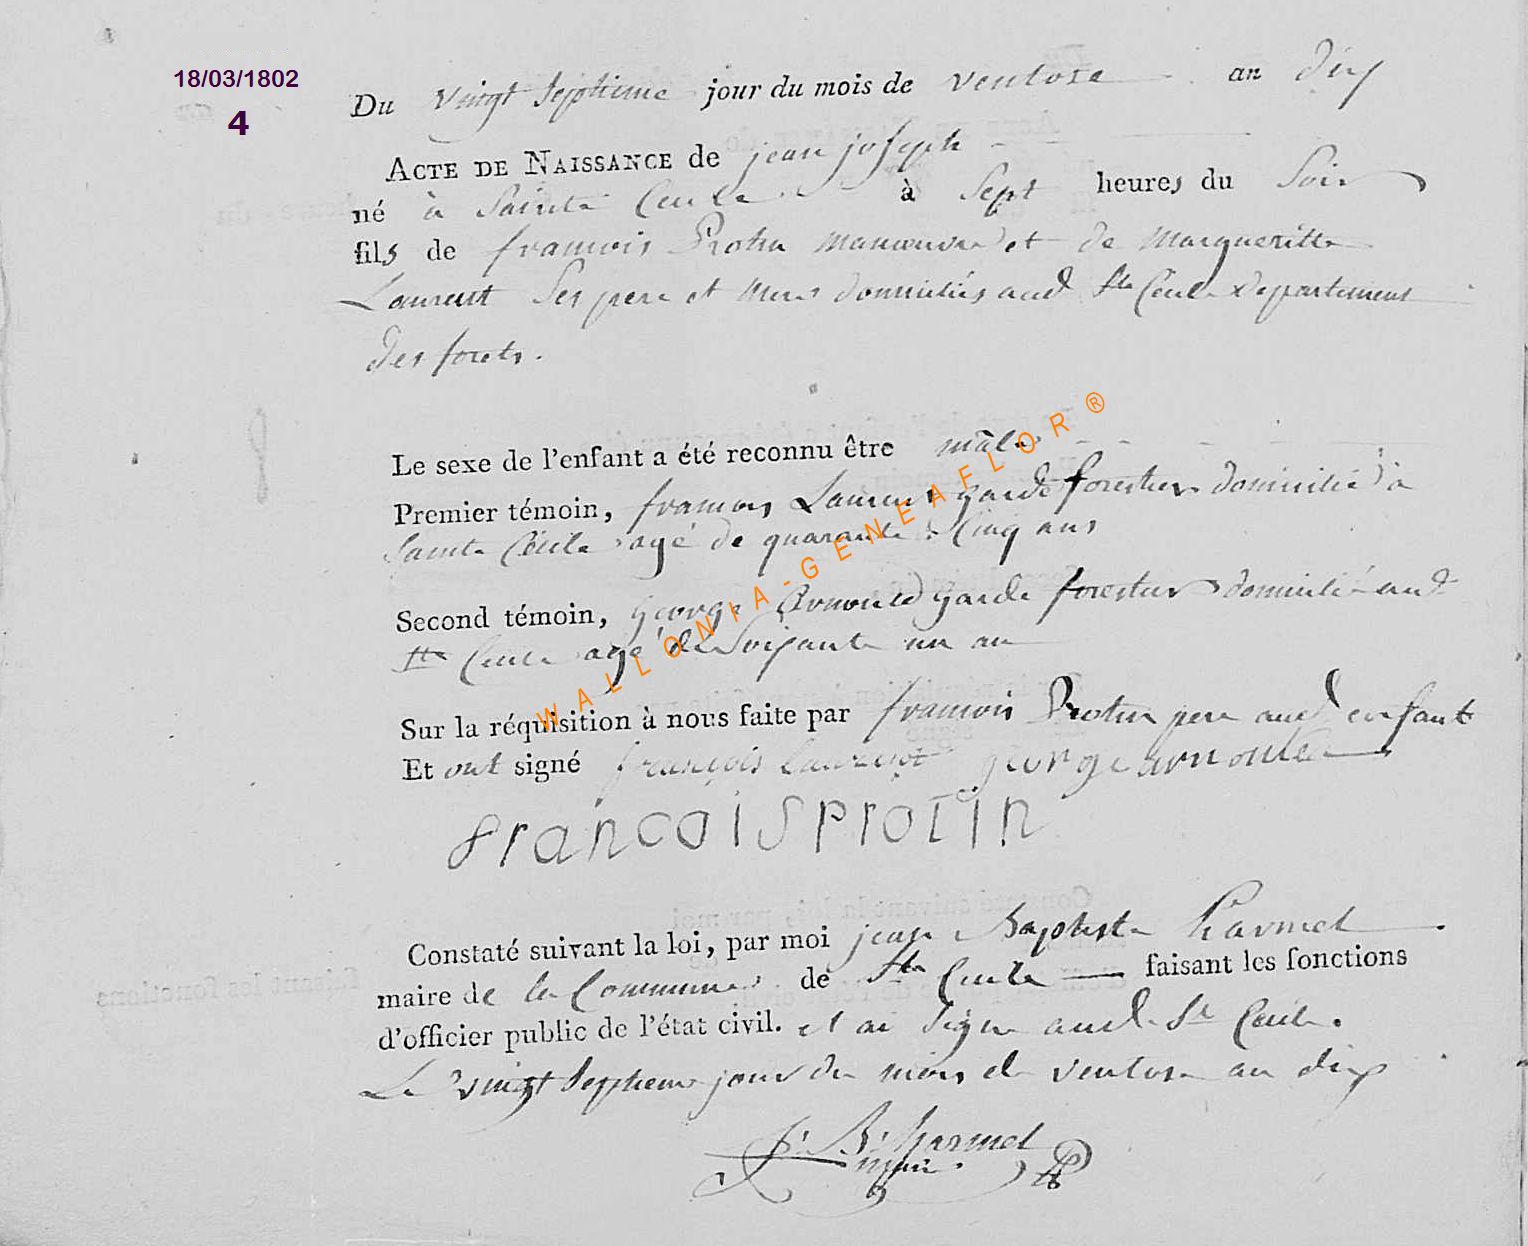 18/03/1802
4
Du vingt septieme jour du mois de ventose an dix
ACTE DE NAISSANCE de jean joseph
né à Sainte Cecile à Sept heures du Soir
fils de francois Protin manoeuvre et de Margueritte
Laurent Ses pere et mere domiciliés aud Ste Cécile departement
des forets.
Le sexe de l'enfant a été reconnu être mâle
Premier témoin, francois Laurent garde forestier domicilié à
Sainte Cécile agé de quarante cinq ans
Second témoin, George Arnould garde forestier domicilié aud
Ste Cecile agé de Soixante un an
Sur la réquisition à nous faite par francois Protin pere aud enfant
Et ont signé françois Laurent george arnould
francois protin
Constaté suivant la loi, par moi jean Baptiste Harmel
maire de la Commune de Ste Cecile faisant les fonctions
d'officier public de l'état civil. et ai Signé aud. Ste Cecile.
Le vingt Septieme jour du mois de ventose an dix
J. B. harmel
maire.
WALLONIA-GENEAFLOR®